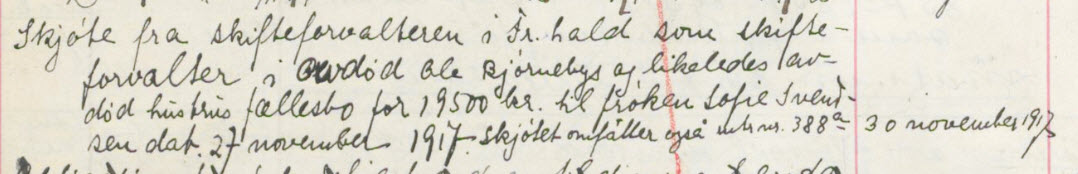 Skjøte fra skifteforvalteren i Fr.hald som skifte-
forvalter i avdød Ole Bjørnebys og likeledes av-
død hustrus fællesbo for 19500 kr. til frøken Sofie Svend-
sen dat. 27 november 1917. Skjøtet omfatter også mtr nr. 388a 30 november 1917